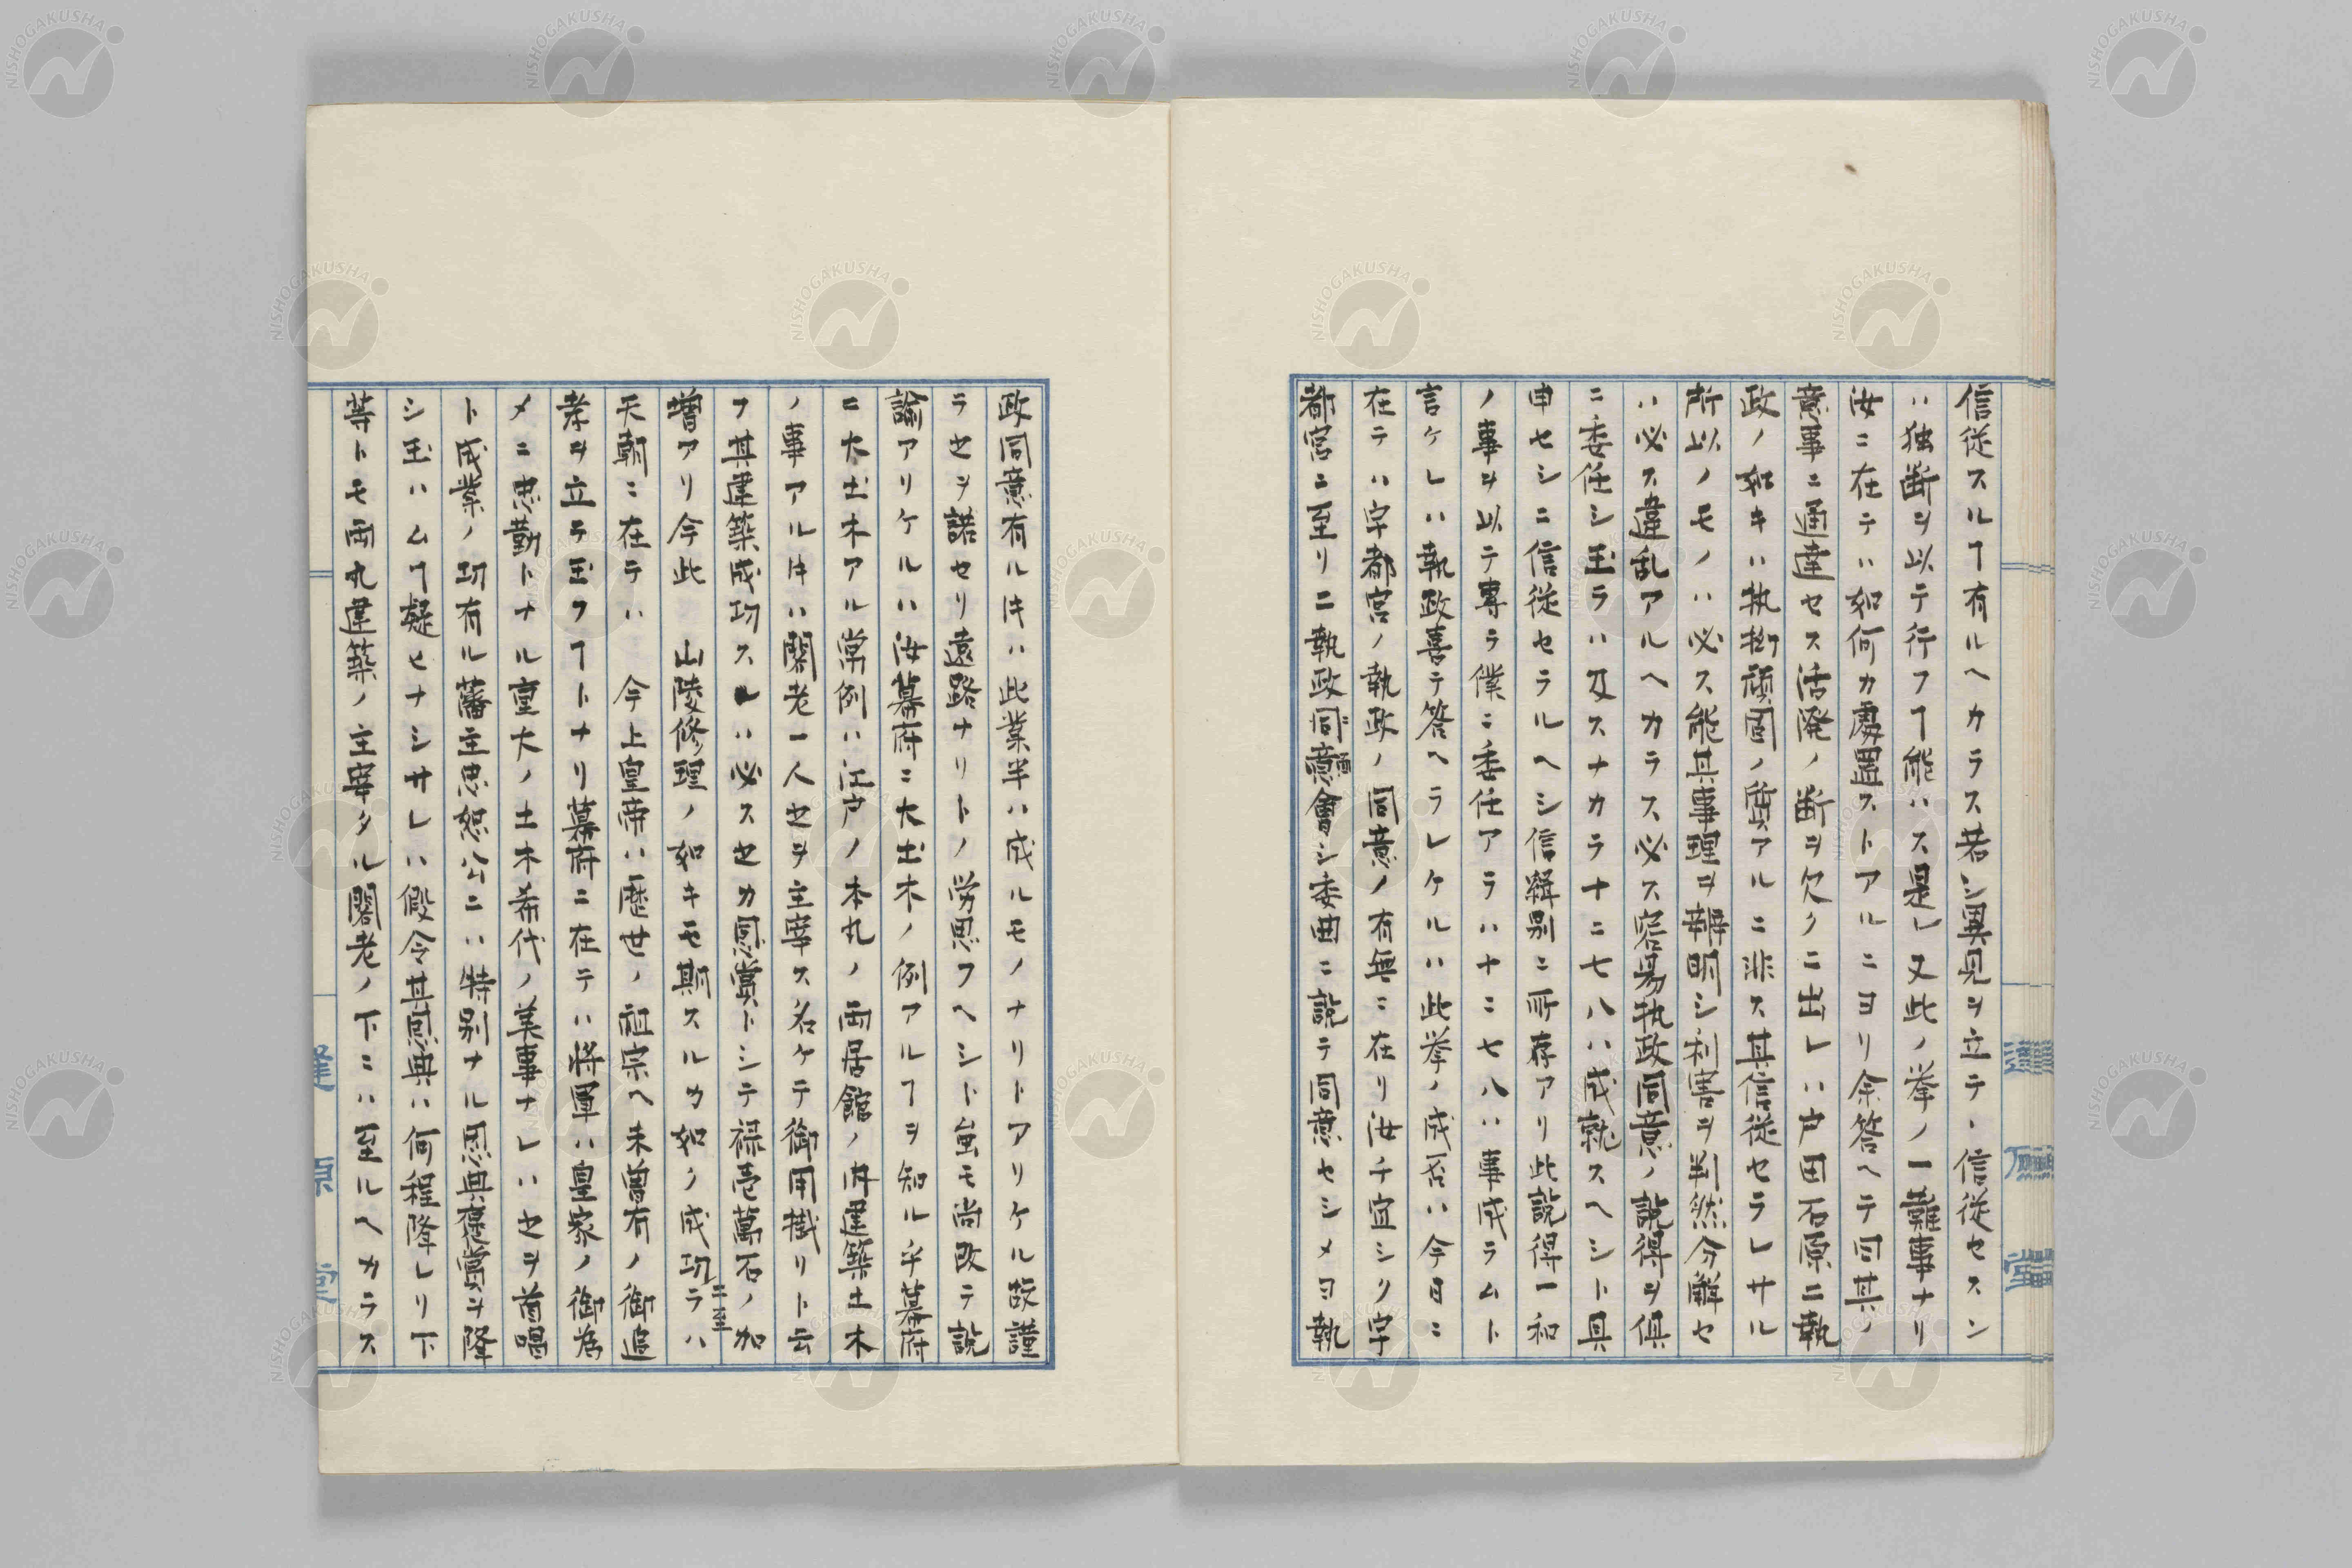 信従スルヿ有ルヘカラス若シ異見ヲ立テ、信従セスン
ハ独断ヲ以テ行フヿ能ハス是レ又此ノ挙ノ一難事ナリ
汝ニ在テハ如何カ處置ストアルニヨリ余答ヘテ曰其ノ
意事ニ通達セス活溌ノ断ヲ欠クニ出レハ戸田石原ニ執
政ノ如キハ執拗頑固ノ質アルニ非ス其信従セラレサル
所以ノモノハ必ス能其事理ヲ辨明シ利害ヲ判然分解セ
ハ必ス違乱アルヘカラス必ス容易執政同意ノ説得ヲ俱
ニ委任シ玉ラハ及スナカラ十ニ七八ハ成就スヘシト具
申セシニ信従セラルヘシ信輯別ニ所存アリ此説得一和
ノ事ヲ以テ専ラ僕ニ委任アラハ十ニ七八ハ事成ラムト
言ケレハ執政喜テ答ヘラレケルハ此挙ノ成否ハ今日ニ
在テハ宇都宮ノ執政ノ同意ノ有無ニ在リ汝チ宜シク宇
都宮ニ至リニ執政同意會シ委曲ニ説テ同意セシメヨ執
政同意有ル𪜈ハ此業半ハ成ルモノナリトアリケル故謹
ラセヲ諾セリ遠路ナリトノ労思フヘシト虽モ尚改テ説
諭アリケルハ汝幕府ニ大土木ノ例アルヿヲ知ル乎幕府
ニ大土木アル常例ハ江戸ノ本丸ノ両居館ノ内建築土木
ノ事アル𪜈ハ閣老一人セヲ主宰ス名ケテ御用掛リト云
フ其建築成功スレハ必スセカ恩賞トシテ禄壱萬石ノ加
増アリ今此 山陵修理ノ如キモ期スルカ如ク成功ニ至ラハ
天朝ニ在テハ 今上皇帝ハ歴世ノ祖宗ヘ未曽有ノ御追
孝ヲ立テ玉フヿトナリ幕府ニ在テハ將軍ハ皇家ノ御為
メニ忠勤トナル重大ノ土木希代ノ美事ナレハセヲ首唱
ト成業ノ功有ル藩主忠恕公ニハ特別ナル恩典褒賞ヲ降
シ玉ハムヿ疑ヒナシサレハ假令其恩典ハ何程降レリ下
等トモ両丸建築ノ主宰タル閣老ノ下ニハ至ルヘカラス